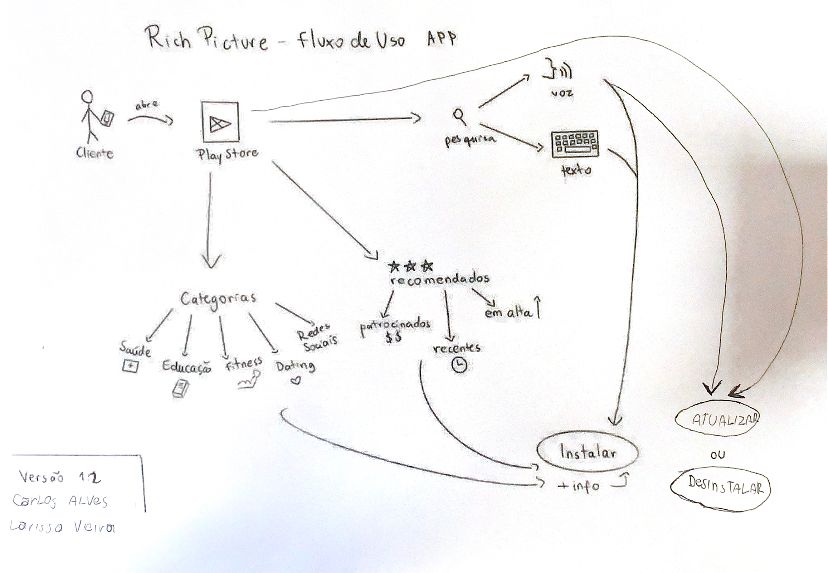 Rich Picture - fluxo de Uso APP
abre
Cliente
Play Store
pesquisa
voz
texto
Categorias
Saúde
Educação
fitness
Dating
Redes
Sociais
recomendados
patrocinados
$$
recentes
em alta
Instalar
+ info
ATUALIZAR
ou
DESINSTALAR
Versão 1.2
Carlos ALVes
Larissa Vieira